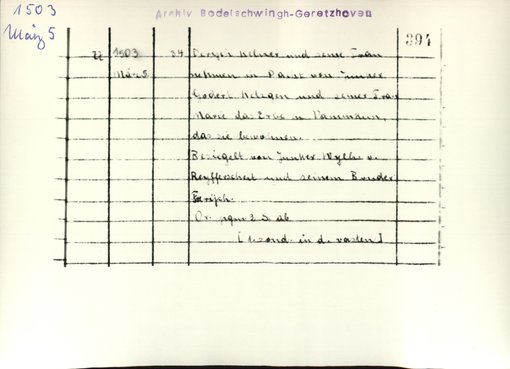 1503
März 5
Archiv Bodelschwingh-Geretzhoven
394
22 1503 34 Deryck Kelner und seine Frau
März 5 nehmen in Pacht von Junker
Godert Ketgen und seiner Frau
Marie das Erbe in
das sie bewohnen.
Besiegelt von Junker Wylhe v.
Reyfferscheit und seinem Bruder
Or. pgm 2 S. ab
[ sond. in d. vasten ]